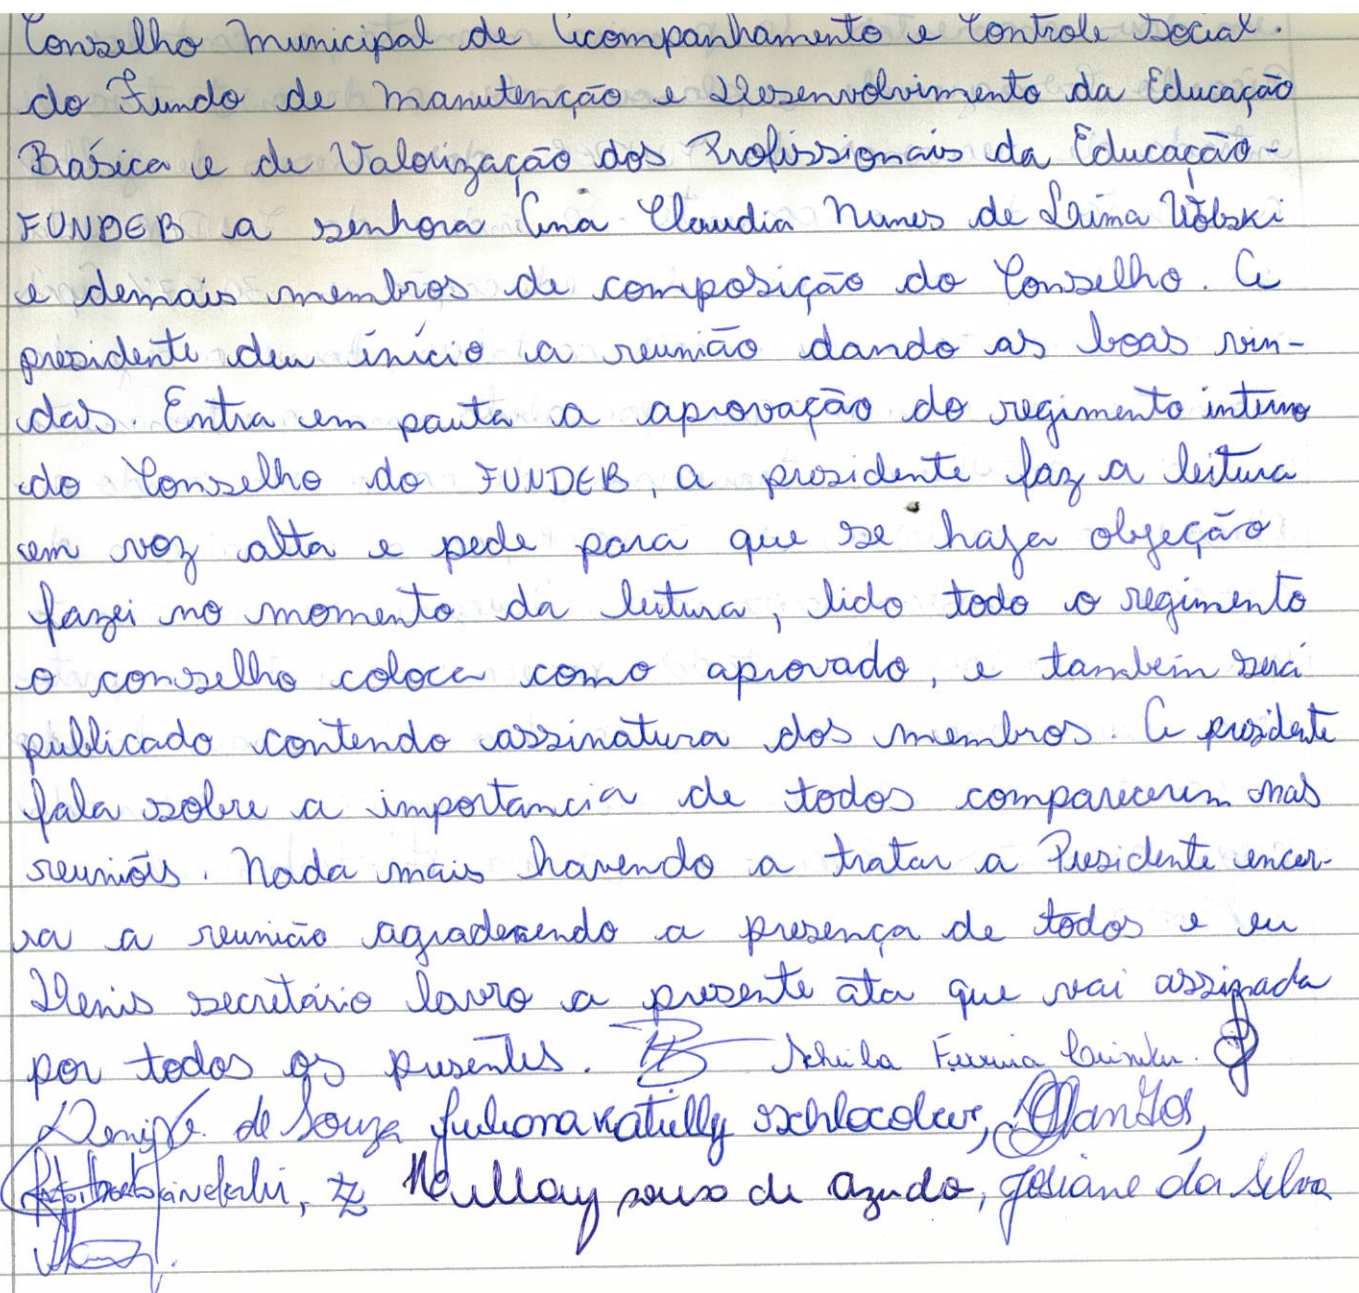 Conselho Municipal de Acompanhamento e Controle Social.
do Fundo de Manutenção e Desenvolvimento da Educação
Básica e de Valorização dos Profissionais da Educação -
FUNDEB a senhora Ana Claudia Nunes de Lima Wolski
e demais membros de composição do Conselho. A
presidente deu início a reunião dando as boas vin-
das. Entra em pauta a aprovação do regimento interno
do Conselho do FUNDEB, a presidente faz a leitura
em voz alta e pede para que se haja objeção
fazer no momento da leitura, lido todo o regimento
o conselho coloca como aprovado, e também será
publicado contendo assinatura dos membros. A presidente
fala sobre a importância de todos comparecerem nas
reuniões. Nada mais havendo a tratar a Presidente encer-
ra a reunião agradecendo a presença de todos e eu
Denis secretário lavro a presente ata que vai assinada
por todos os presentes.
de Souza Juliana Katielly
souza de, Josiane da Silva